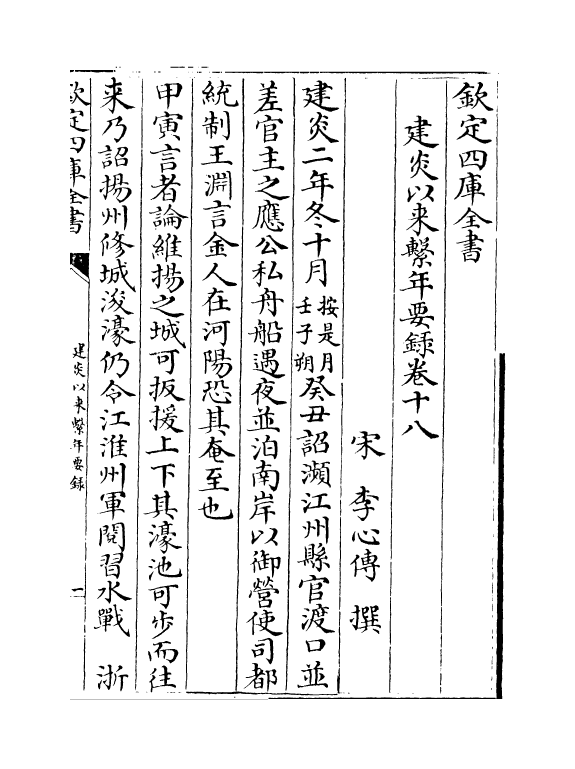 欽定四庫全書
建炎以来繫年要録卷十八
宋 李心傳 撰
建炎二年冬十月按是月壬子朔癸丑詔瀕江州縣官渡口並
差官主之應公私舟船遇夜並泊南岸以御營使司都
統制王淵言金人在河陽恐其奄至也
甲寅言者論維揚之城可扳援上下其濠池可歩而往
来乃詔揚州修城浚濠仍令江淮州軍閱習水戰 浙
欽定四庫全書
建炎以来繫年要録
一